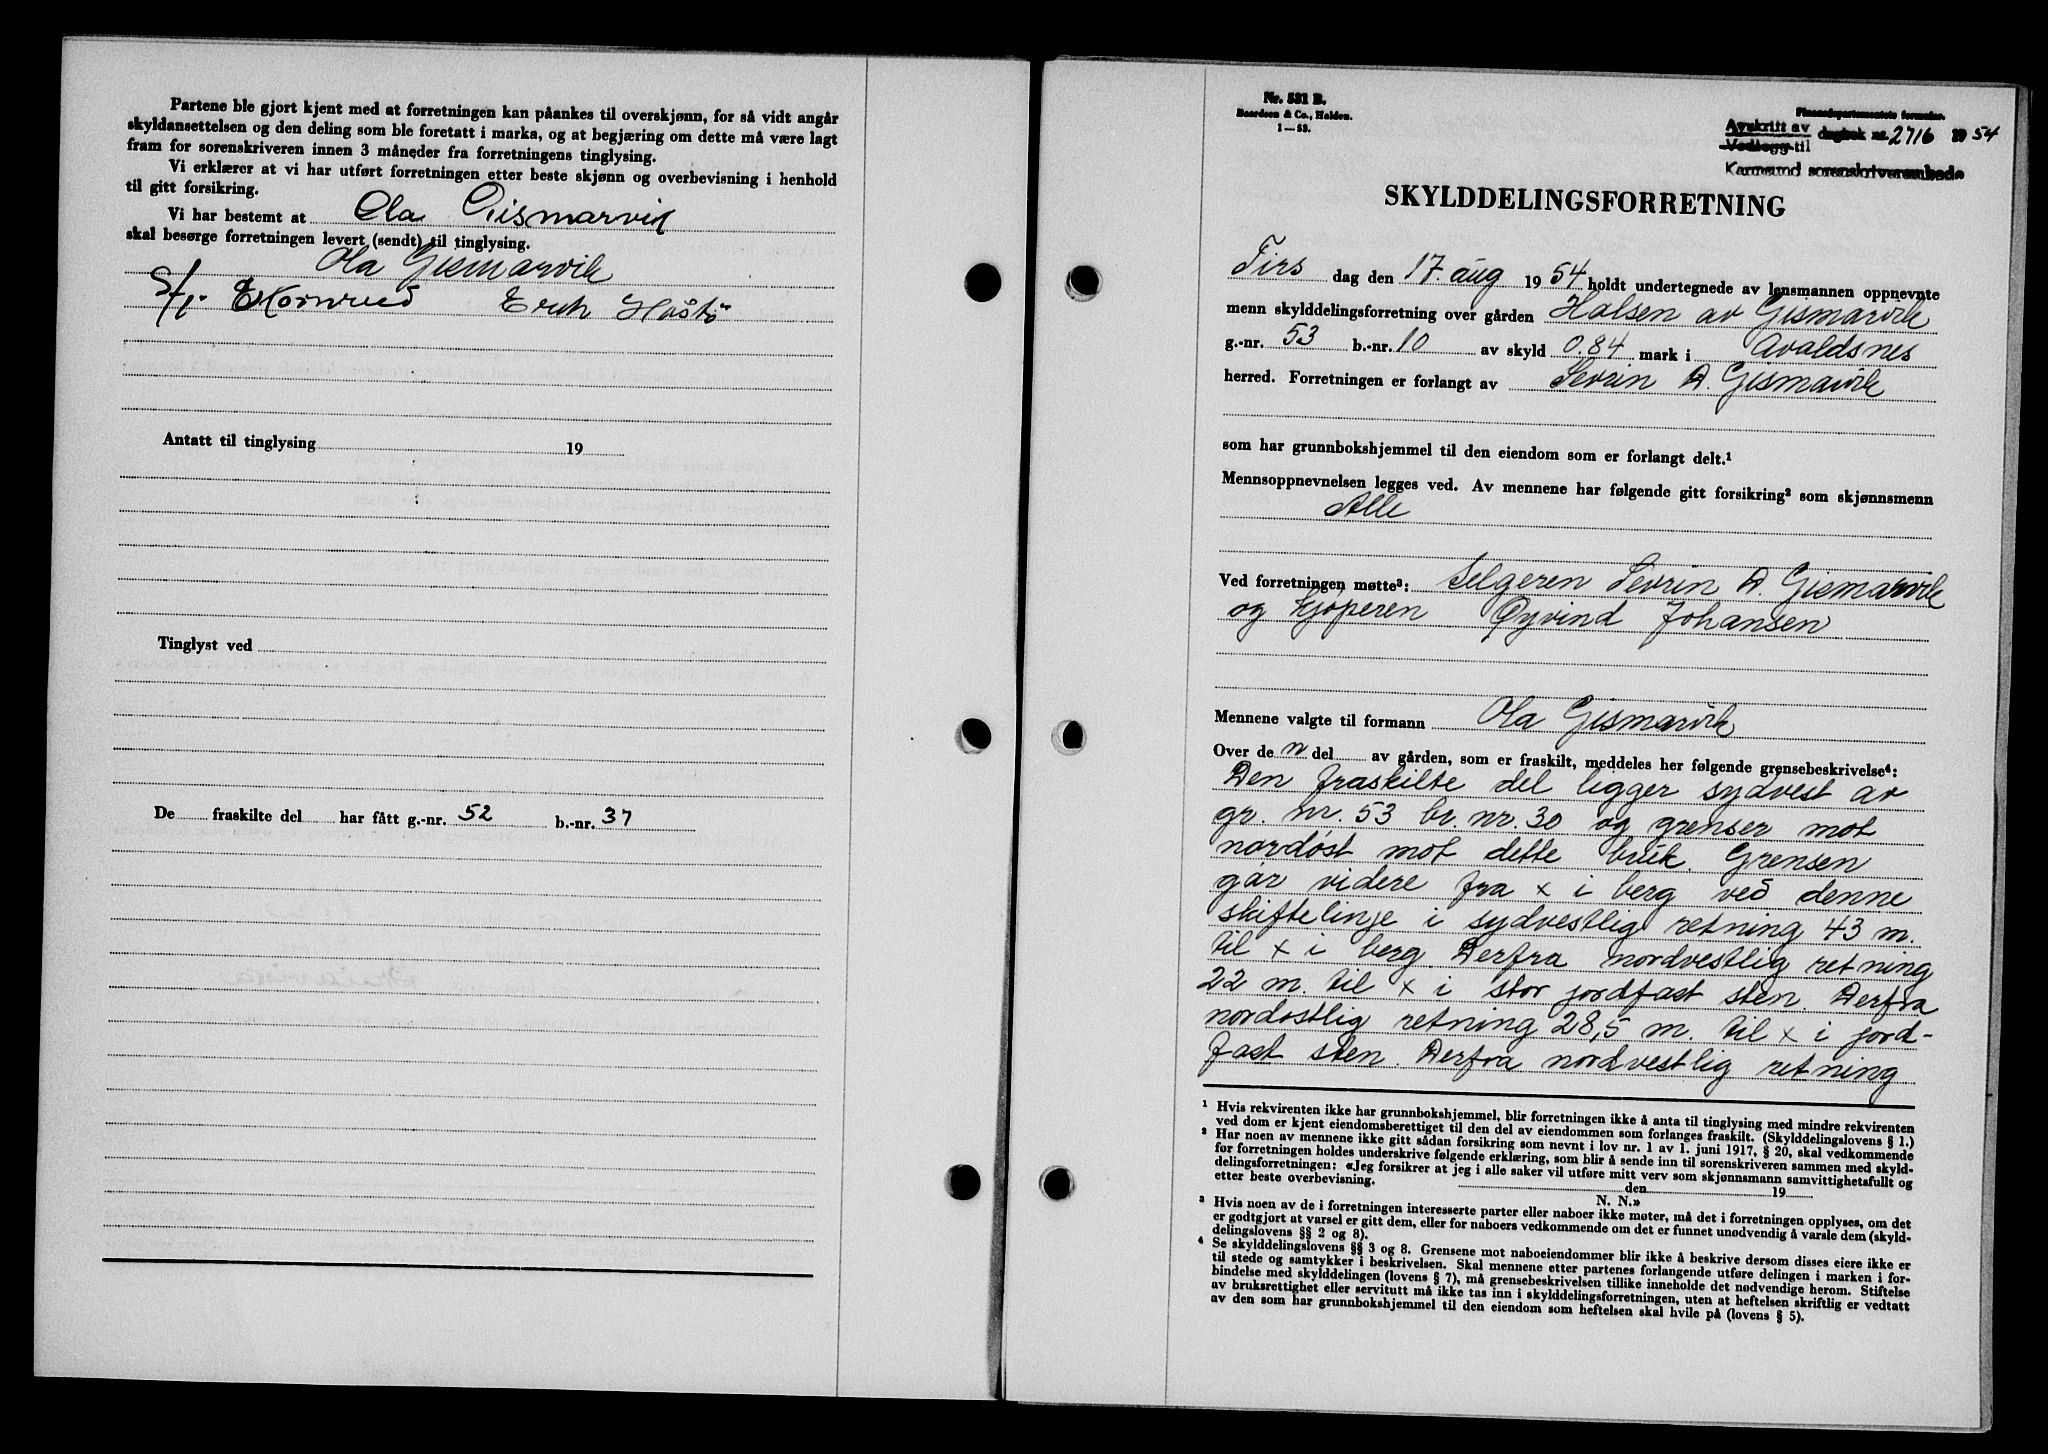 Partene ble gjort kjent med at forretningen kan påankes til overskjønn, for så vidt angår
skyldansettelsen og den deling som ble foretatt i marka, og at begjæring om dette må være lagt
fram for sorenskriveren innen 3 måneder fra forretningens tinglysing.
Vi erklærer at vi har utført forretningen etter beste skjønn og overbevisning i henhold
til gitt forsikring.
Vi har bestemt at Ola Gismarvik
skal besørge forretningen levert (sendt) til tinglysing.
Ola Gismarvik
Erik Håstø
Antatt til tinglysing 19
Tinglyst ved
De fraskilte del har fått g.-nr. 52 b.-nr. 37
Nr. 531 B.
Baardsen & Co., Halden.
1—53.
Finansdepartementets formular.
Avskrift av
Vedlegg til
dagbok nr. 2716 1954
Karmsund sorenskriverembede
SKYLDDELINGSFORRETNING
Tirs dag den 17. aug 1954 holdt undertegnede av lensmannen oppnevnte
menn skylddelingsforretning over gården Halsen av Gismarvik
g.-nr. 53 b.-nr. 10 av skyld 0.84 mark i Avaldsnes
herred. Forretningen er forlangt av Sevrin D. Gismarvik
som har grunnbokshjemmel til den eiendom som er forlangt delt.¹
Mennsoppnevnelsen legges ved. Av mennene har følgende gitt forsikring² som skjønnsmenn
Alle
Ved forretningen møtte³: Selgeren Sevrin D. Gismarvik
og kjøperen Øyvind Johansen
Mennene valgte til formann Ola Gismarvik
Over de n del av gården, som er fraskilt, meddeles her følgende grensebeskrivelse⁴:
Den fraskilte del ligger sydvest av
gr. nr. 53 br. nr. 30 og grenser mot
nordøst mot dette bruk. Grensen
går videre fra x i berg ved denne
skiftelinje i sydvestlig retning 43 m.
til x i berg. Derfra nordvestlig retning
22 m. til x i stor jordfast sten. Derfra
nordostlig retning 28,5 m. til x i jord-
fast sten. Derfra nordvestlig retning
¹ Hvis rekvirenten ikke har grunnbokshjemmel, blir forretningen ikke å anta til tinglysing med mindre rekvirenten
ved dom er kjent eiendomsberettiget til den del av eiendommen som forlanges fraskilt. (Skylddelingslovens § 1.)
² Har noen av mennene ikke gitt sådan forsikring som nevnt i lov nr. 1 av 1. juni 1917, § 20, skal vedkommende
før forretningen holdes underskrive følgende erklæring, som blir å sende inn til sorenskriveren sammen med skyld-
delingsforretningen: «Jeg forsikrer at jeg i alle saker vil utføre mitt verv som skjønnsmann samvittighetsfullt og
etter beste overbevisning. den 19
N. N.»
³ Hvis noen av de i forretningen interesserte parter eller naboer ikke møter, må det i forretningen opplyses, om det
er godtgjort at varsel er gitt dem, eller for naboers vedkommende om det er funnet unødvendig å varsle dem (skyld-
delingslovens §§ 2 og 8).
⁴ Se skylddelingslovens §§ 3 og 8. Grensene mot naboeiendommer blir ikke å beskrive dersom disses eiere ikke er
til stede og samtykker i beskrivelsen. Skal mennene etter partenes forlangende utføre delingen i marken i for-
bindelse med skylddelingen (lovens § 7), må grensebeskrivelsen tillike inneholde det nødvendige herom. Stiftelse
av bruksrettighet eller servitutt må ikke tas inn i skylddelingsforretningen, uten at heftelsen skriftlig er vedtatt
av den som har grunnbokshjemmel til den eiendom som heftelsen skal hvile på (lovens § 5).